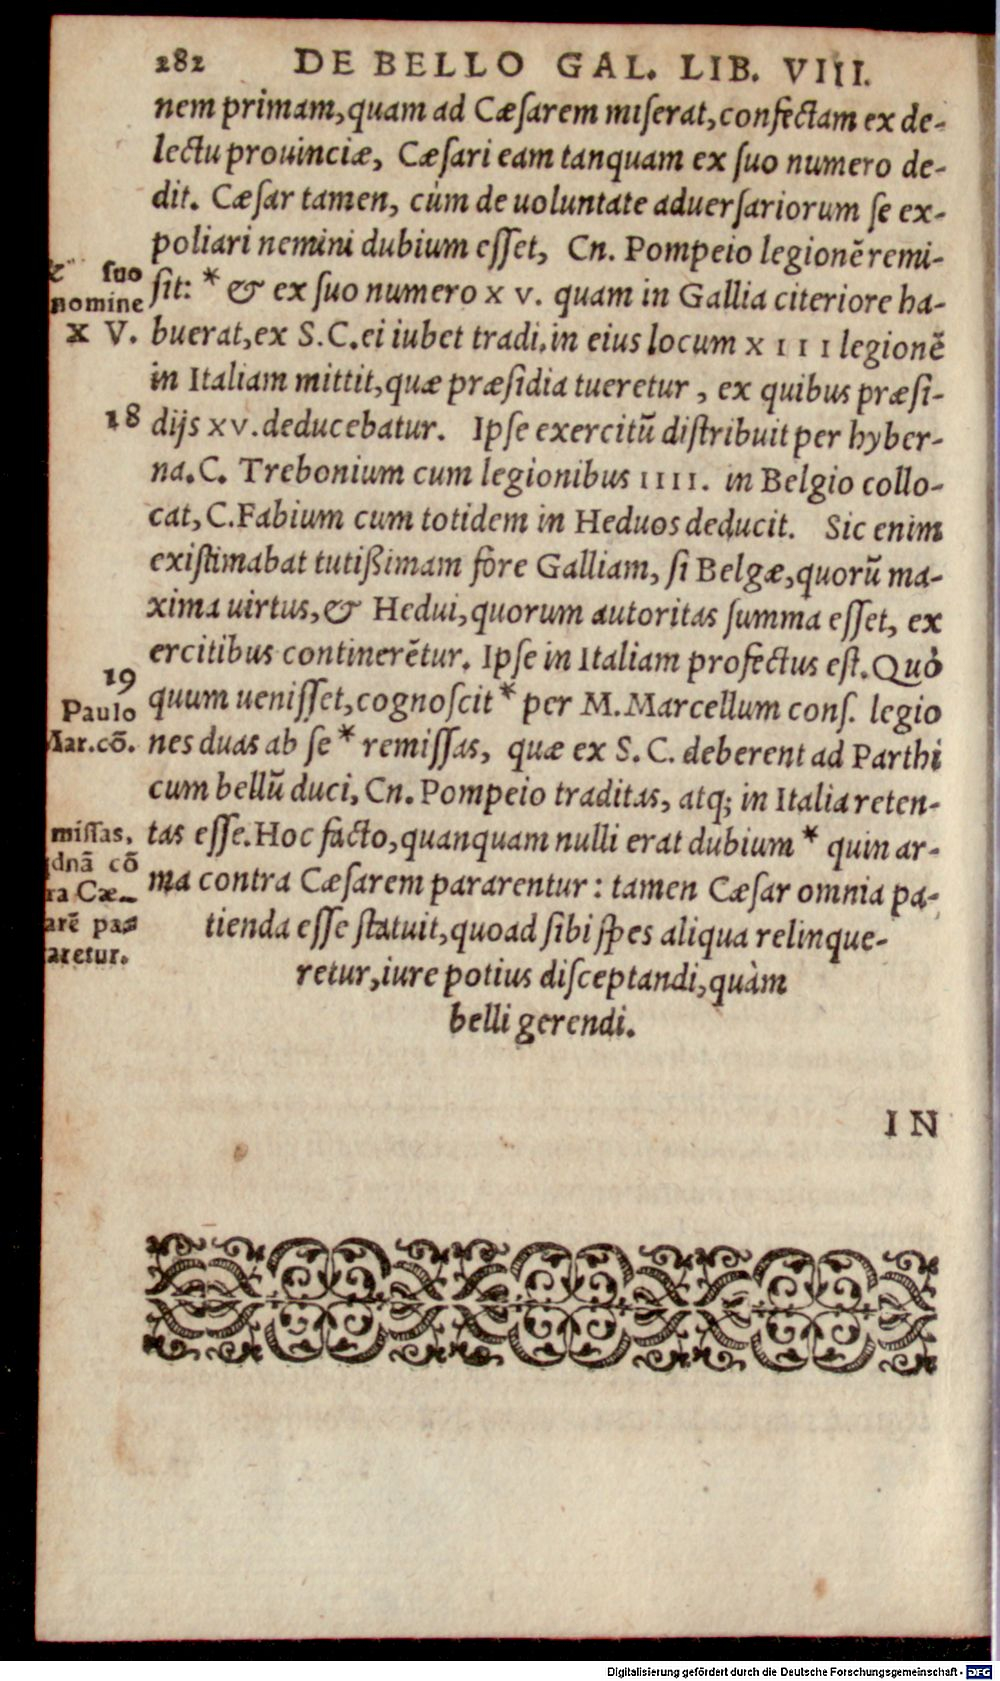 282 DE BELLO GAL. LIB. VIII.
nem primam, quam ad Cæſarem miſerat, confectam ex de-
lectu prouinciæ, Cæſari eam tanquam ex ſuo numero de-
dit. Cæſar tamen, cùm de uoluntate aduerſariorum ſe ex-
poliari nemini dubium eſſet, Cn. Pompeio legionẽ remi-
ſit: * & ex ſuo numero XV. quam in Gallia citeriore ha-
buerat, ex S.C. ei iubet tradi. in eius locum XIII legionẽ
in Italiam mittit, quæ præſidia tueretur, ex quibus præſi-
dijs XV. deducebatur. Ipſe exercitũ diſtribuit per hyber-
na. C. Trebonium cum legionibus IIII. in Belgio collo-
cat, C. Fabium cum totidem in Heduos deducit. Sic enim
exiſtimabat tutißimam fore Galliam, ſi Belgæ, quorũ ma-
xima uirtus, & Hedui, quorum autoritas ſumma eſſet, ex
ercitibus continerẽtur. Ipſe in Italiam profectus eſt. Quò
quum ueniſſet, cognoſcit * per M. Marcellum conſ. legio
nes duas ab ſe * remiſſas, quæ ex S.C. deberent ad Parthi
cum bellũ duci, Cn. Pompeio traditas, atq; in Italia reten-
tas eſſe. Hoc facto, quanquam nulli erat dubium * quin ar-
ma contra Cæſarem pararentur: tamen Cæſar omnia pa-
tienda eſſe ſtatuit, quoad ſibi ſpes aliqua relinque-
retur, iure potius diſceptandi, quàm
belli gerendi.
IN
ſuo
nomine
XV.
18
19
Paulo
Mar. cõ.
miſſas,
idnã cõ
ra Cæ-
arẽ pa-
aretur.
Digitalisierung gefördert durch die Deutsche Forschungsgemeinschaft - DFG